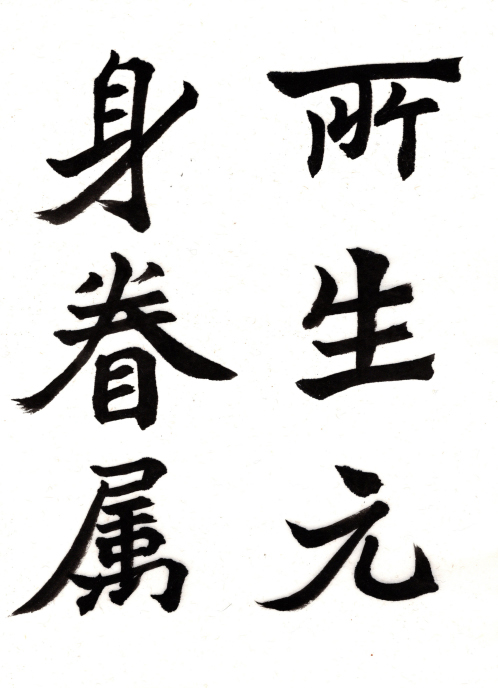 所生元
身眷属